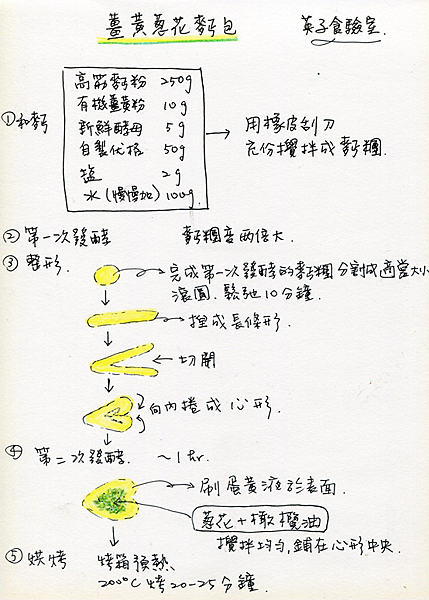 薑黃蔥花麵包
英子食驗室
①和麵
高筋麵粉 250g
有機薑黃粉 10g
新鮮酵母 5g
自製代格 50g
塩 2g
水(慢慢加) 100g
用橡皮刮刀
充份攪拌成麵糰.
② 第一次發酵 麵糰變兩倍大.
③ 整形.
完成第一次發酵的麵糰分割成適當大小
滾圓. 鬆弛10分鐘.
捏成長條形.
切開
向內捲成心形.
④ 第二次發酵. ~1 hr.
刷蛋黃液於表面.
蔥花+橄欖油
攪拌均勻,鋪在心形中央.
⑤ 烘烤 烤箱預熱.
200°C 烤20-25分鐘.